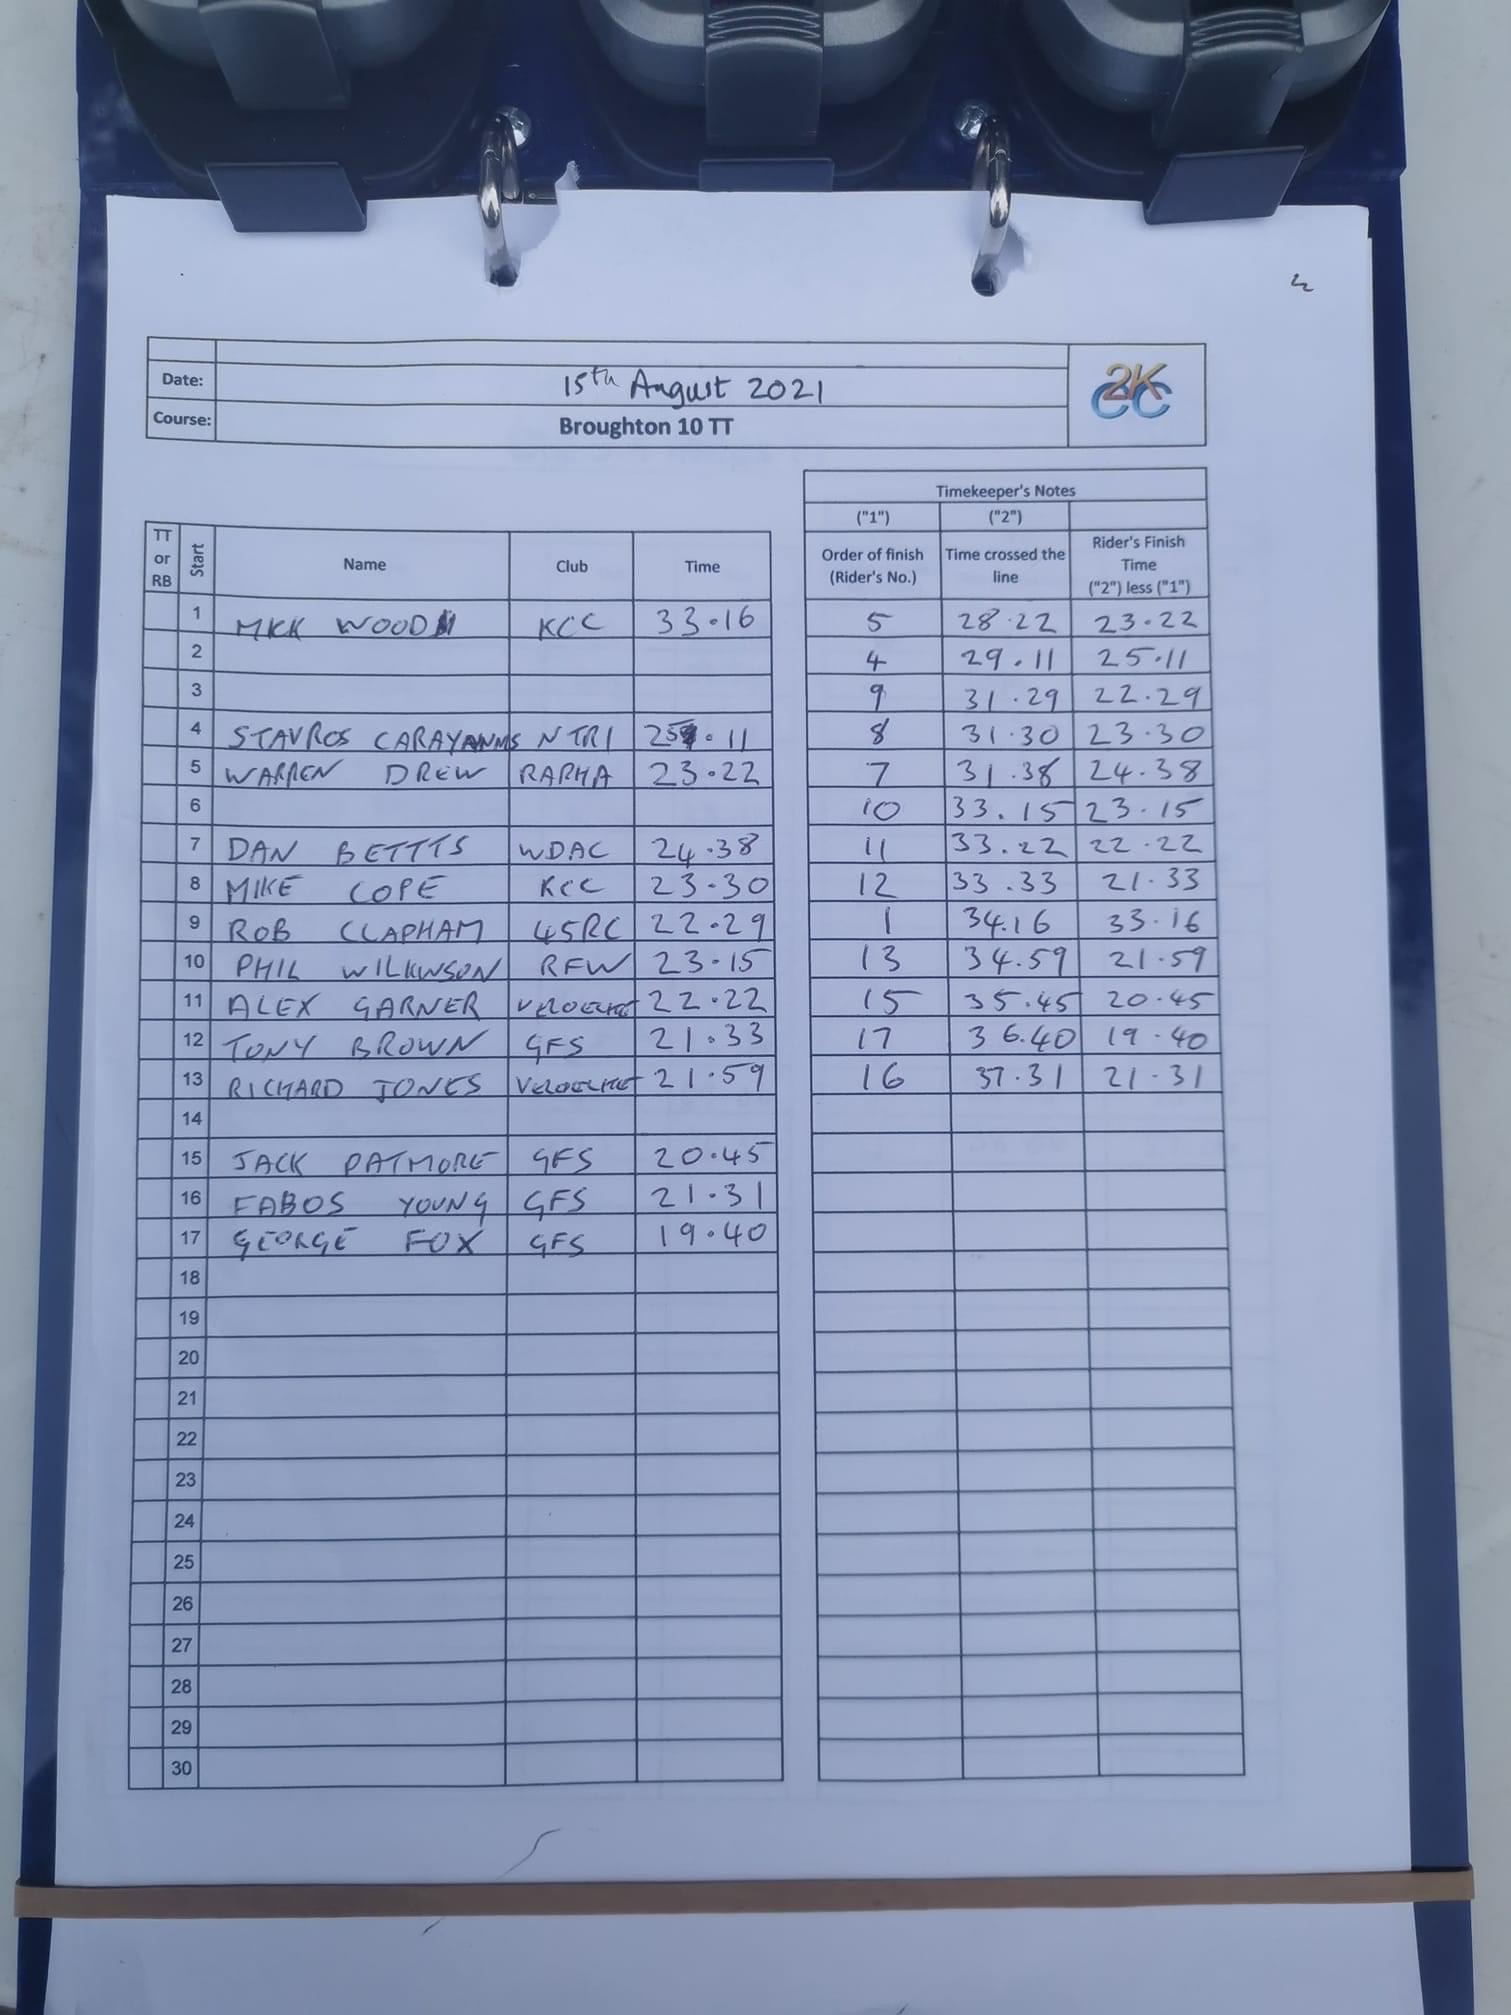 2KCC
Date: 15th August 2021
Course: Broughton 10 TT
Timekeeper's Notes
("1") ("2")
TT or RB Start Name Club Time Order of finish (Rider's No.) Time crossed the line Rider's Finish Time ("2") less ("1")
1 WOOD KCC 33.16 5 28.22 23.22
2 4 29.11 25.11
3 9 31.29 22.29
4 STAVROS N TRI 25.11 8 31.30 23.30
5 WARREN DREW RAPHA 23.22 7 31.38 24.38
6 10 33.15 23.15
7 DAN BETTTS WDAC 24.38 11 33.22 22.22
8 MIKE COPE KCC 23.30 12 33.33 21.33
9 ROB CLAPHAM 45RC 22.29 1 34.16 33.16
10 PHIL WILKINSON RFW 23.15 13 34.59 21.59
11 ALEX GARNER 22.22 15 35.45 20.45
12 TONY BROWN GFS 21.33 17 36.40 19.40
13 RICHARD JONES 21.59 16 37.31 21.31
14
15 JACK PATMORE GFS 20.45
16 YOUNG GFS 21.31
17 GEORGE FOX GFS 19.40
18
19
20
21
22
23
24
25
26
27
28
29
30